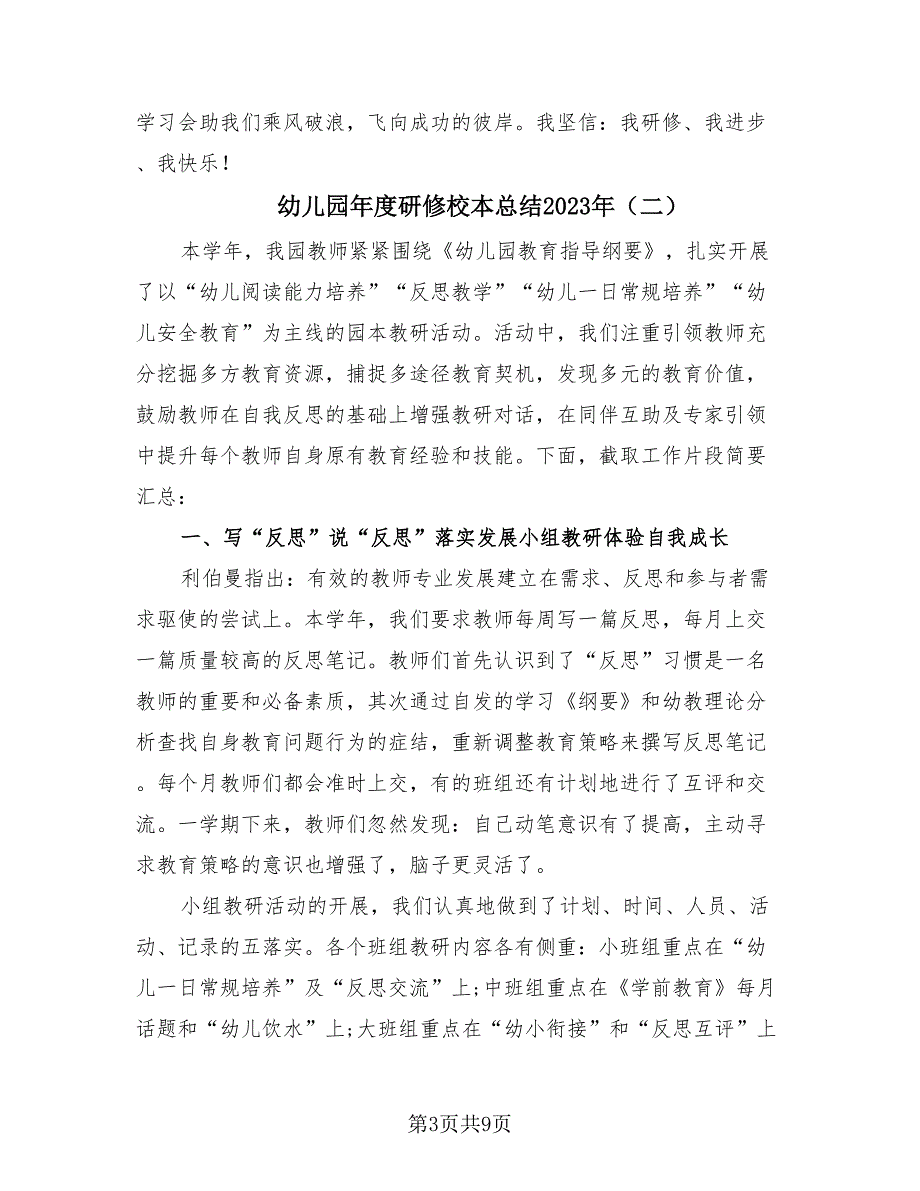 学习会助我们乘风破浪，飞向成功的彼岸。我坚信：我研修、我进步
、我快乐！
幼儿园年度研修校本总结2023年（二）
本学年，我园教师紧紧围绕《幼儿园教育指导纲要》，扎实开展
了以“幼儿阅读能力培养”“反思教学”“幼儿一日常规培养”“幼
儿安全教育”为主线的园本教研活动。活动中，我们注重引领教师充
分挖掘多方教育资源，捕捉多途径教育契机，发现多元的教育价值，
鼓励教师在自我反思的基础上增强教研对话，在同伴互助及专家引领
中提升每个教师自身原有教育经验和技能。下面，截取工作片段简要
汇总：
一、写“反思”说“反思”落实发展小组教研体验自我成长
利伯曼指出：有效的教师专业发展建立在需求、反思和参与者需
求驱使的尝试上。本学年，我们要求教师每周写一篇反思，每月上交
一篇质量较高的反思笔记。教师们首先认识到了“反思”习惯是一名
教师的重要和必备素质，其次通过自发的学习《纲要》和幼教理论分
析查找自身教育问题行为的症结，重新调整教育策略来撰写反思笔记
。每个月教师们都会准时上交，有的班组还有计划地进行了互评和交
流。一学期下来，教师们忽然发现：自己动笔意识有了提高，主动寻
求教育策略的意识也增强了，脑子更灵活了。
小组教研活动的开展，我们认真地做到了计划、时间、人员、活
动、记录的五落实。各个班组教研内容各有侧重：小班组重点在“幼
儿一日常规培养”及“反思交流”上;中班组重点在《学前教育》每月
话题和“幼儿饮水”上;大班组重点在“幼小衔接”和“反思互评”上
第3页共9页